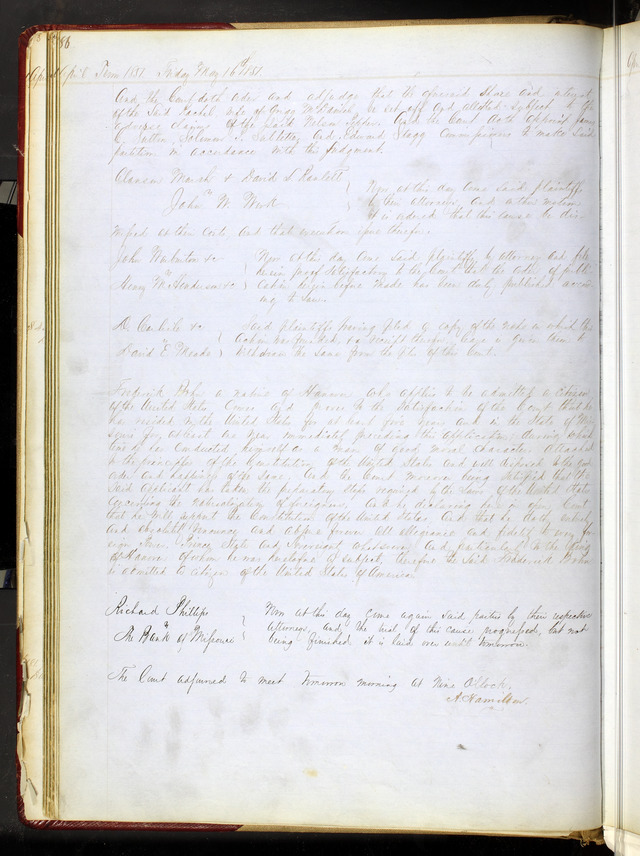 86
April Term 1851 Friday May 16th 1851
And the Court doth order and adjudge that the aforesaid share and interest
of the said Rachel wife of be set off and allotted subject to the
adverse claim of the said Wilson And the Court doth appoint James
Solomon J. Sublette, and Edward Stagg Commissioners to make said
partition in accordance with the Judgment.
Marsh & David S. Ranlett
vs
John W. Work
Now at this day come said plaintiffs
by their attorney, and on their motion
it is ordered that this cause be dis-
missed at their cost, and that execution issue therefor.
John Warburton &c
vs
Henry Henderson &c
Now at this day come said plaintiffs by attorney and file
herein proof satisfactory to the Court that the order of publi-
cation herein before made has been duly published accord-
ing to Law.
D. Carlisle &c
vs
David E. Meade
Said plaintiffs having filed a copy of the note on which this
action was founded, and a receipt therefor, leave is given them to
withdraw the same from the file of this Court.
Frederick Hohn a native of Hanover who applies to be admitted a citizen
of the United States comes and proves to the satisfaction of the Court that he
has resided in the United States for at least five years and in the State of Mis-
souri for at least one year immediately preceding this application: during which
time he has conducted himself as a man of good moral character attached
to the principles of the Constitution of the United States and well disposed to the good
order and happiness of the same. And the Court moreover being satisfied that the
said applicant has taken the preparatory steps required by the laws of the United States
concerning the naturalization of foreigners. And he declaring here in open Court
that he will support the Constitution of the United States, and that he doth entirely
and absolutely renounce and abjure forever all allegiance and fidelity to every for-
eign Power, Prince, State and Sovereignty whatsoever, and particularly to the King
of Hanover of whom he was heretofore a subject, therefore the said Frederick Hohn
is admitted a citizen of the United States of America
Richard Phillips
vs
The Bank of Missouri
Now at this day come again said parties by their respective
attorneys and the trial of this cause progressed, but not
being finished it is laid over until tomorrow.
The Court adjourned to meet tomorrow morning at Nine O'Clock.
A. Hamilton